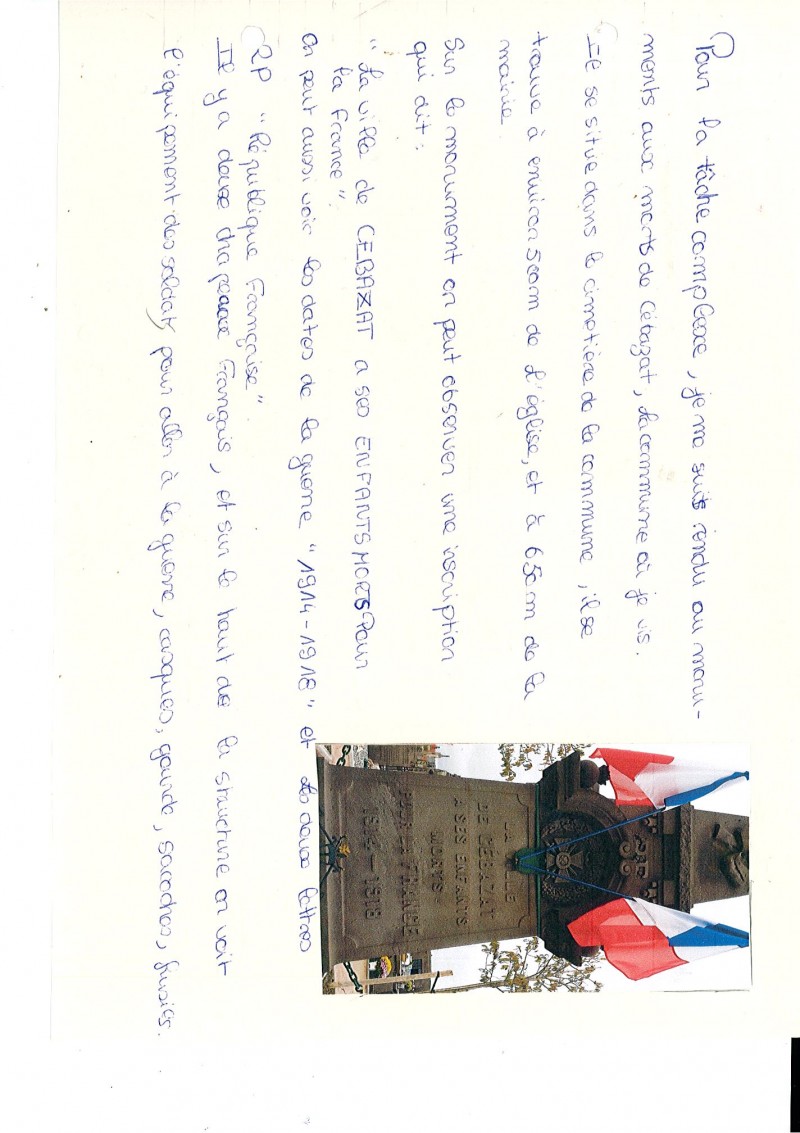 Pour la tâche complexe, je me suis rendu au monu-
ments aux morts de Cébazat, la commune où je vis.
Il se situe dans le cimetière de la commune, il se
trouve à environ 500m de l'église, et à 650m de la
mairie.
Sur le monument on peut observer une inscription
qui dit :
"La ville de CEBAZAT a ses ENFANTS MORTS Pour
la France".
On peut aussi voir les dates de la guerre "1914-1918" et les deux lettres
RP "République Française"
Il y a deux drapeaux Français, et sur le haut de la structure on voit
l'équipement des soldats pour aller à la guerre, casques, gourde, sacoches, fusils.
LA VILLE
DE CEBAZAT
A SES ENFANTS
MORTS
POUR LA FRANCE
1914 - 1918